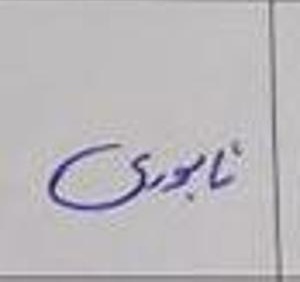 نابوری